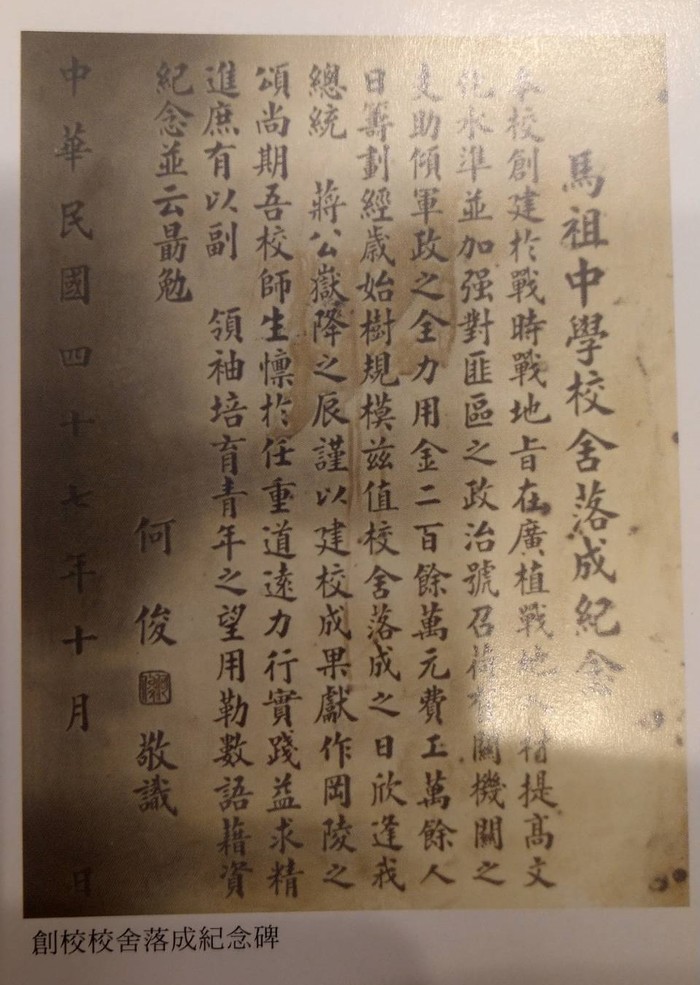 馬祖中學校舍落成紀念
本校創建於戰時戰地旨在廣植戰地人材提高文
化水準並加强對匪區之政治號召荷有關機關之
支助傾軍政之全力用金二百餘萬元費工萬餘人
日籌劃經歲始樹規模茲值校舍落成之日欣逢我
總統 蔣公嶽降之辰謹以建校成果獻作岡陵之
頌尚期吾校師生懍於任重道遠力行實踐益求精
進庶有以副 領袖培育青年之望用勒數語藉資
紀念並云勗勉
何俊 敬識
中華民國四十七年十月 日
創校校舍落成紀念碑